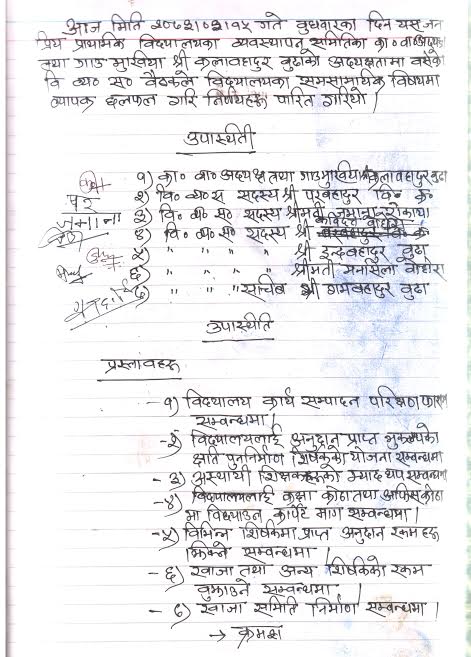 आज मिति २०७३।०३।१५ गते वुधवारका दिन यस जन
प्रिय प्राथमिक विद्यालयका व्यवस्थापन समितिका का० वा० अध्यक्ष
तथा गाउ मुखिया श्री कलावहादुर वुढाको अध्यक्षतामा वसेको
वि० व्य० स० वैठकले विद्यालयका समसामायिक विषयमा
व्यापक छलफल गरि निर्णयहरु पारित गरियो।
उपास्थिती
१) का० वा० अध्यक्ष तथा गाउमुखिया श्री कलावहादुर वुढा
२) वि० व्य० स सदस्य श्री परवहादुर वि० क०
३) वि० व्य० स० सदस्य श्रीमती जमाना रोकाया
४) वि० व्य० स० सदस्य श्री
५) " " " श्री इन्द्रवहादुर वुढा
६) " " " श्रीमती मनसिला वोहोरा
७) " " " साचिव श्री रामवहादुर वुढा
उपास्थिति
प्रस्तावहरु
- १) विद्यालय कार्य सम्पादन परिक्षण फारम
सम्वन्धमा।
- २) विद्यालयलाई अनुदान प्राप्त भुकम्पको
क्षति पुननिर्माण शिर्षकको योजना सम्वन्धमा
- ३) अस्थायी शिक्षकहरुको म्याद थप सम्वन्धमा
- ४) विद्यालयलाई कक्षा कोठा तथा अफिस कोठा
मा विछ्याउन कार्पेट माग सम्वन्धमा।
- ५) विभिन्न शिर्षकमा प्राप्त अनुदान रकम हरु
झिक्ने सम्वन्धमा।
- ६) खाजा तथा अन्य शिर्षकको रकम
वुझाउने सम्वन्धमा।
- ७) खाजा समिति निर्माण सम्वन्धमा।
→ क्रमश